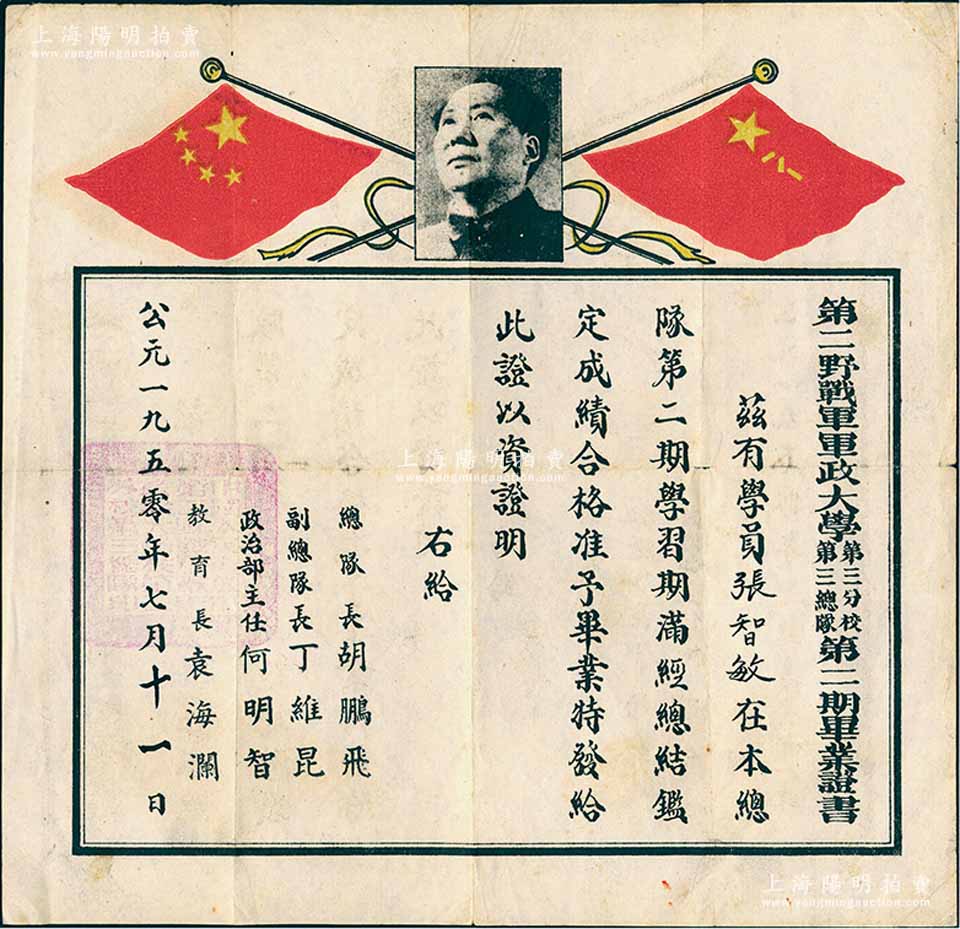 上海陽明拍賣
www.yangmingauction.com
八一
第二野戰軍軍政大學第三分校第三總隊第二期畢業證書
茲有學員張智敏在本總
隊第二期學習期滿經總結鑑
定成績合格准予畢業特發給
此證以資證明
右給
總隊長胡鵬飛
副總隊長丁維昆
政治部主任何明智
教育長袁海瀾
公元一九五零年七月十一日
上海陽明拍賣
www.yangmingauction.com
上海陽明拍賣
www.yangmingauction.com